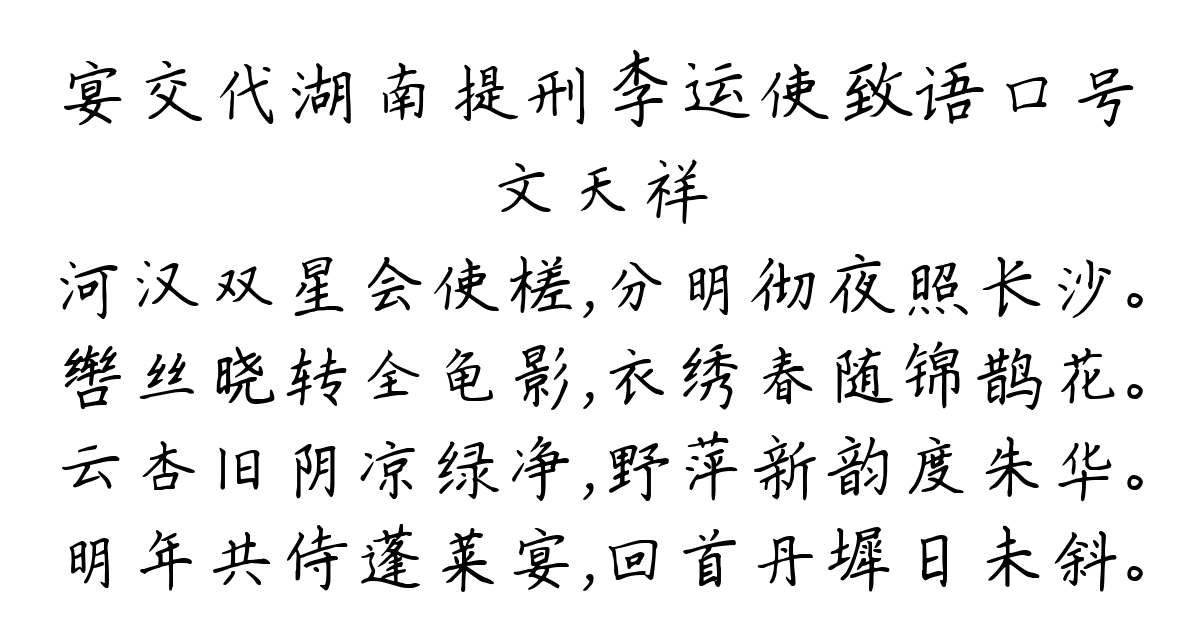 宴交代湖南提刑李运使致语口号
文天祥
河汉双星会使槎,分明彻夜照长沙。
辔丝晓转全龟影,衣绣春随锦鹊花。
云杏旧阴凉绿净,野萍新韵度朱华。
明年共侍蓬莱宴,回首丹墀日未斜。